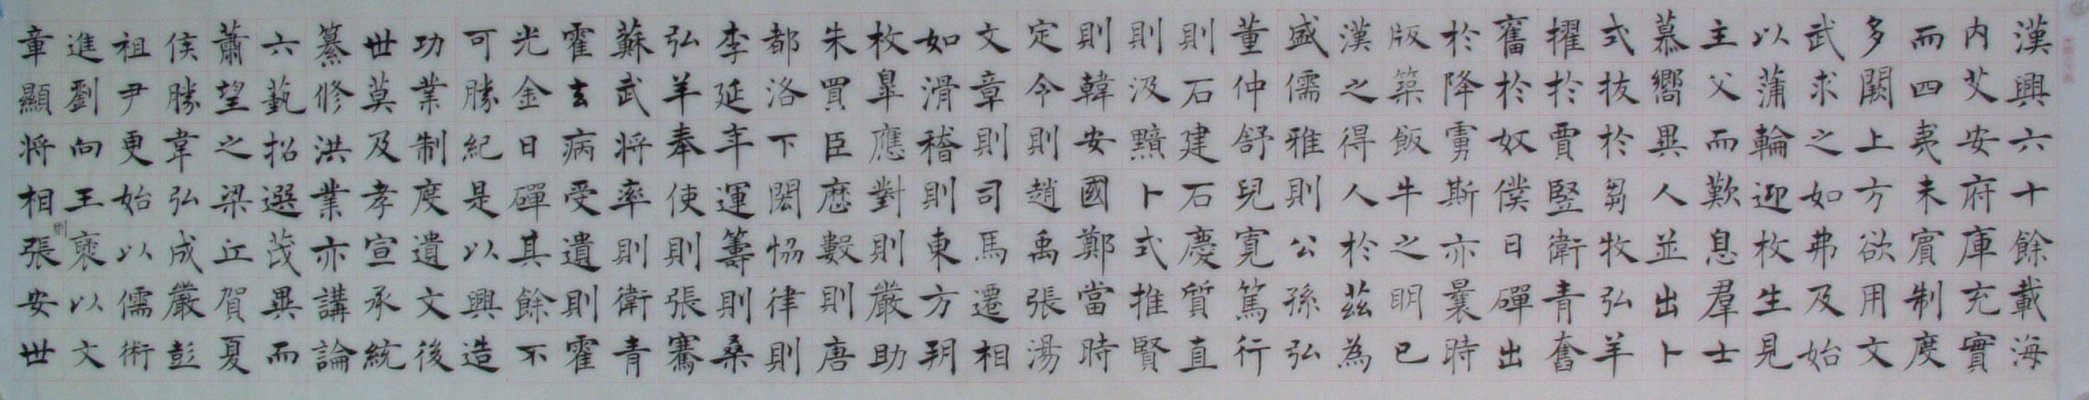 漢興六十餘載海
內艾安府庫充實
而四夷未賓制度
多闕上方欲用文
武求之如弗及始
以蒲輪迎枚生見
主父而歎息羣士
慕嚮異人並出卜
式拔於芻牧弘羊
擢於賈豎衛青奮
舊於奴僕日磾出
於降虜斯亦曩時
版築飯牛之明已
漢之得人於茲為
盛儒雅則公孫弘
董仲舒兒寬篤行
則石建石慶質直
則汲黯卜式推賢
則韓安國鄭當時
定令則趙禹張湯
文章則司馬遷相
如滑稽則東方朔
枚皐應對則嚴助
朱買臣厯數則唐
都洛下閎恊律則
李延年運籌則桑
弘羊奉使則張騫
蘇武將率則衛青
霍去病受遺則霍
光金日磾其餘不
可勝紀是以興造
功業制度遺文後
世莫及孝宣承統
纂修洪業亦講論
六藝招選茂異而
蕭望之梁丘賀夏
侯勝韋弘成嚴彭
祖尹更始以儒術
進劉向王褒以文
章顯將相則張安世